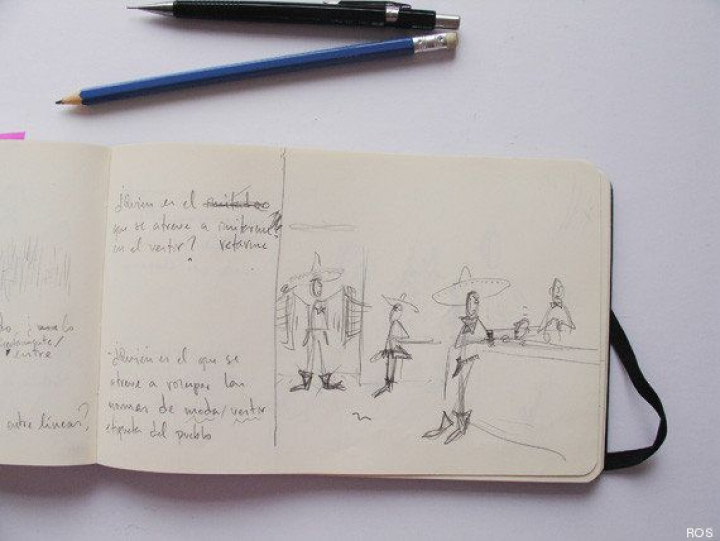 entre
entre líneas?
¿Quién es el
que se atreve a imitarme
en el vestir? retarme
¿Quién es el que se
atreve a romper las
normas de moda/vestir
etiqueta del pueblo
ROS